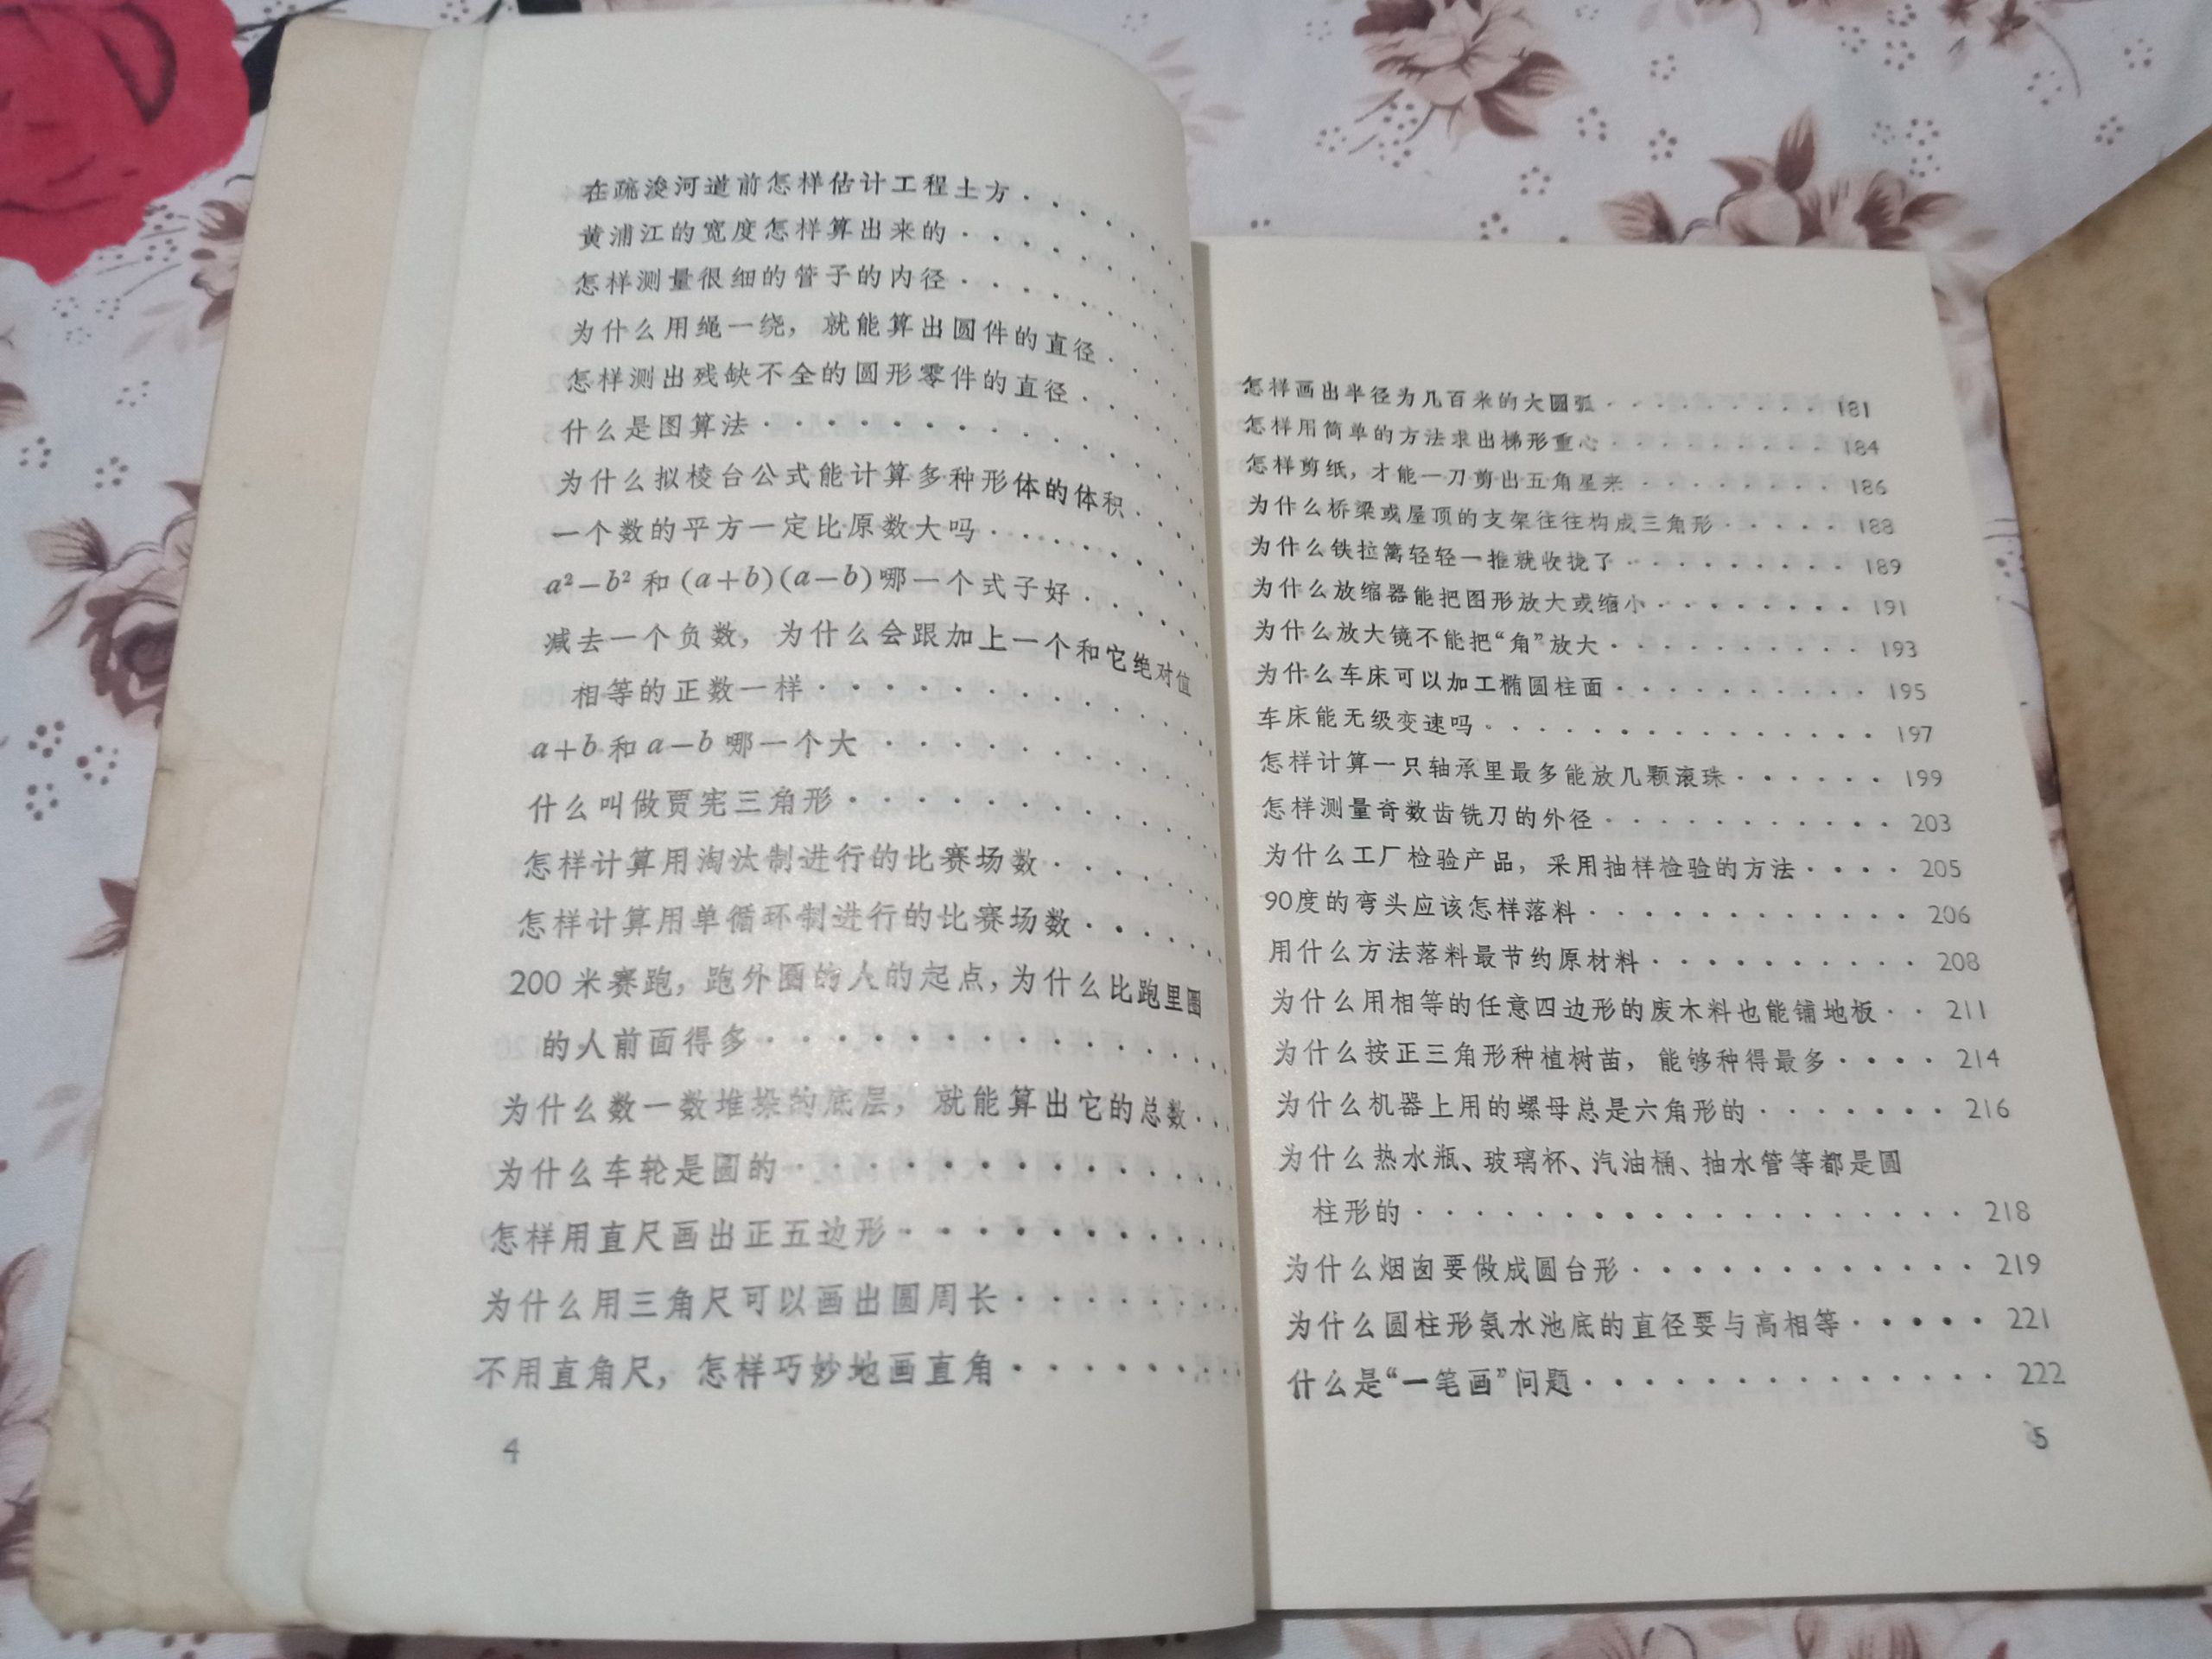 在疏浚河道前怎样估计工程土方
黄浦江的宽度怎样算出来的
怎样测量很细的管子的内径
为什么用绳一绕，就能算出圆件的直径
怎样测出残缺不全的圆形零件的直径
什么是图算法
为什么拟棱台公式能计算多种形体的体积
一个数的平方一定比原数大吗
a²－b² 和 (a＋b)(a－b)哪一个式子好
减去一个负数，为什么会跟加上一个和它绝对值
相等的正数一样
a＋b 和 a－b 哪一个大
什么叫做贾宪三角形
怎样计算用淘汰制进行的比赛场数
怎样计算用单循环制进行的比赛场数
200 米赛跑，跑外圈的人的起点，为什么比跑里圈
的人前面得多
为什么数一数堆垛的底层，就能算出它的总数
为什么车轮是圆的
怎样用直尺画出正五边形
为什么用三角尺可以画出圆周长
不用直角尺，怎样巧妙地画直角
4
怎样画出半径为几百米的大圆弧 · · · · · · · · · 181
怎样用简单的方法求出梯形重心 · · · · · · · · · 184
怎样剪纸，才能一刀剪出五角星来 · · · · · · · · 186
为什么桥梁或屋顶的支架往往构成三角形 · · · · · 188
为什么铁拉篱轻轻一推就收拢了 · · · · · · · · · 189
为什么放缩器能把图形放大或缩小 · · · · · · · · 191
为什么放大镜不能把“角”放大 · · · · · · · · · · 193
为什么车床可以加工椭圆柱面 · · · · · · · · · · 195
车床能无级变速吗 · · · · · · · · · · · · · · · 197
怎样计算一只轴承里最多能放几颗滚珠 · · · · · · 199
怎样测量奇数齿铣刀的外径 · · · · · · · · · · · 203
为什么工厂检验产品，采用抽样检验的方法 · · · · 205
90度的弯头应该怎样落料 · · · · · · · · · · · · 206
用什么方法落料最节约原材料 · · · · · · · · · · 208
为什么用相等的任意四边形的废木料也能铺地板 · · 211
为什么按正三角形种植树苗，能够种得最多 · · · · 214
为什么机器上用的螺母总是六角形的 · · · · · · · 216
为什么热水瓶、玻璃杯、汽油桶、抽水管等都是圆
柱形的 · · · · · · · · · · · · · · · · · · · 218
为什么烟囱要做成圆台形 · · · · · · · · · · · · 219
为什么圆柱形氨水池底的直径要与高相等 · · · · · 221
什么是“一笔画”问题 · · · · · · · · · · · · · · 222
5